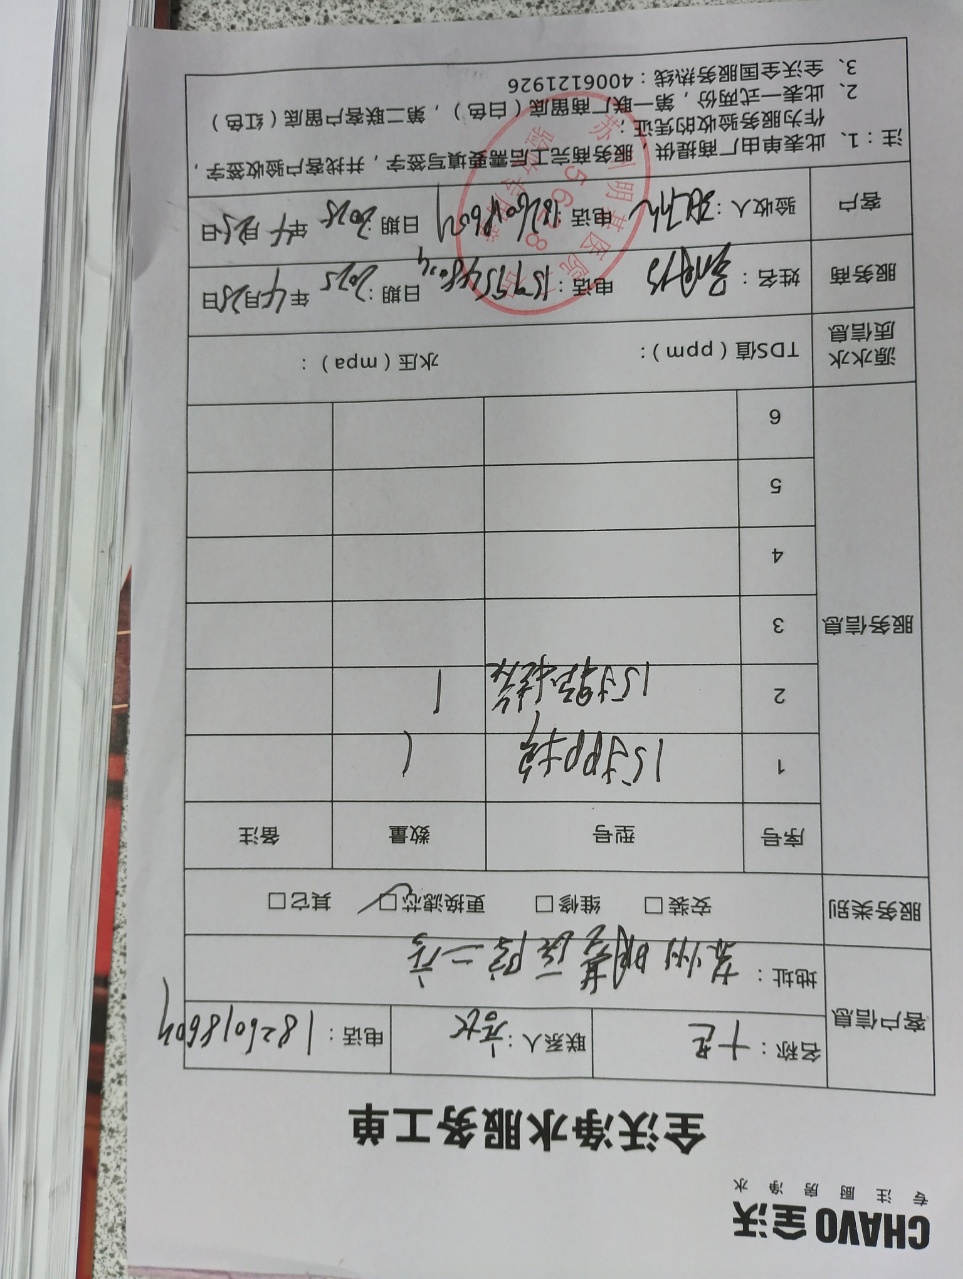 CHAVO全沃
专注厨房净水
全沃净水服务工单
客户信息
名称： 联系人： 电话：18260186047
地址：苏州明基医院二楼
服务类别
安装□ 维修□ 更换滤芯□✓ 其它□
服务信息
序号 型号 数量 备注
1 15寸PP棉 1
2 15寸 1
3
4
5
6
源水水质信息
TDS值（ppm）： 水压（mpa）：
服务商
姓名： 电话： 日期：2025年4月25日
客户
验收人： 电话：18260186047 日期：2025年4月25日
注：1、此表单由厂商提供，服务商完工后需要填写签字，并找客户验收签字，
作为服务验收的凭证；
2、此表一式两份，第一联厂商留底（白色），第二联客户留底（红色）
3、全沃全国服务热线：4006121926